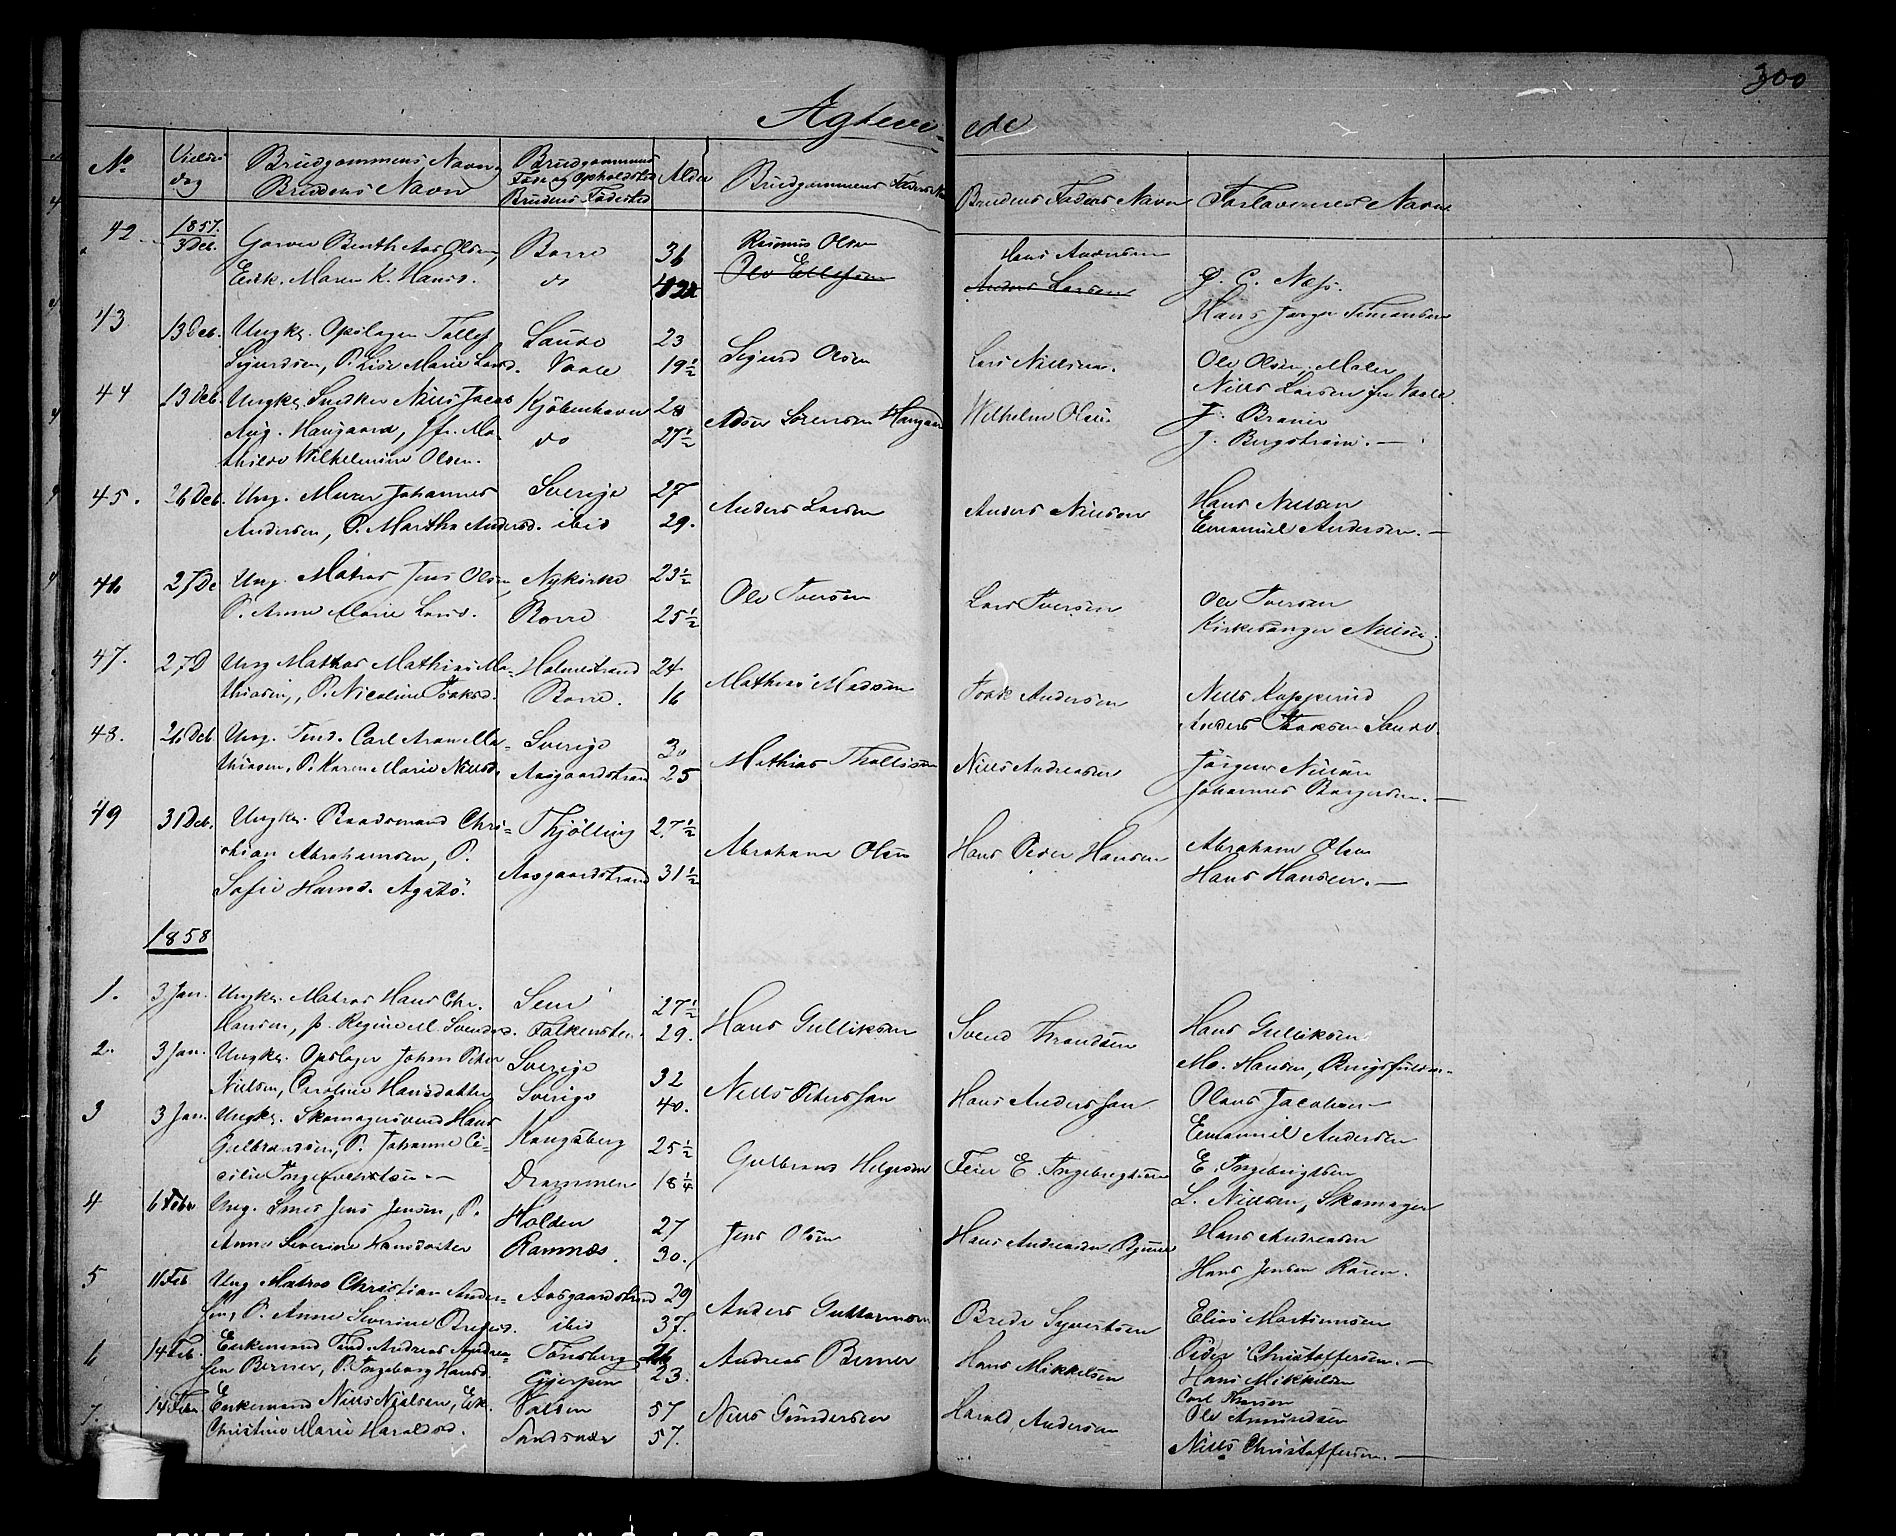 300
Agtevi- ede
No Vielses dag Brudgommens Navn Brudens Navn Brudgommens Føde og Opholdsted Brudens Fødested Alder Brudgommens Faders Navn Brudens Faders Navn Forlovernes Navne
42 1857. 3 Deb. Garver Benth Olsen, Borre 36 Rasmus Olsen Hans Andersen
Enk. Maren K. Hansd. do Ole Ellefsen Anders Larsen P. C. Næss.
Hans Jørgen
43 13 Deb. Ungk. Opslagen Tollef Saude 23 Sigurd Olsen Lars Nielsen. Ole Olsen, Maler
Sigurdsen, P. Lise Marie Larsd. Vaale 19½ Niels Larsen fra Vaale
44 13 Deb. Ungk. Snedker Niels Jacob Kjöbenhavn 28 Adser Sörensen Haugaard Wilhelm Olsen J. Braner
Aug. Haugaard, Jfr. Ma- do 27½ J. Bergström. —
thilde Wilhelmine Olsen.
45. 26 Deb. Ung. Murer Johannes Sverige 27 Anders Larsen Anders Nielsen Hans Nielsen
Andersen, P. Martha Andersd. ibid 29. Emanuel Andersen. —
46 27 De Ung. Matros Jens Olsen, Nykirke 23½ Ole Iversen Lars Iversen Ole Iversen
P. Anne Marie Larsd. Borre 25½ Kirkesanger Nielsen.
47. 27 D Ung Matros Mathias Ma- Holmestrand 24. Mathias Madsen Isak Andersen Niels Kopperud
thiasen, P. Nicoline Isaksd. Borre. 16 Anders Isaksen Sande.
48. 26 Deb. Ung. Tind. Carl Aron Ma- Sverige 30 Mathias Niels Andreasen Jörgen Nielsen
thiasen, P. Karen Marie Nielsd. Aasgaardstrand 25 Johannes Borgersen. —
49 31 Deb. Ungk. Baadsmand Chri- Thjölling 27½ Abraham Olsen Hans Peder Hansen Abraham Olsen
stian Abrahamsen, P. Aasgaardstrand 31½ Hans Hansen. —
Sofie Hansd. Agatö.
1858
1. 3 Jan. Ungk. Matros Hans Chr. Sem 27½ Hans Gulliksen Svend Trondsen Hans Gulliksen
Hansen, p. Regine M. Svendsd. Falkensten. 29. Mo. Hansen,
2. 3 Jan. Ungk. Opslager Johan Peter Sverige 32 Niels Petersson Hans Andersson Olaus Jacobsen
Nielsen, Caroline Hansdatter Sverige 40. Emanuel Andersen
3 3 Jan. Ungk. Skomagersvend Hans Kongsberg 25½ Gulbrand Helgesen Feier E. Ingebrigtsen E. Ingebrigtsen
Gulbrandsen, P. Johanne Ce- Drammen 18¼ L. Nielsen, Skomager
cilie Ingebrechtsen —
4 6 Febr Ung. Smed Jens Jensen, P. Holden 27 Jens Olsen Hans Andreasen Hans Andreasen
Anne Severine Hansdatter Ramnæs. 30. Hans Jensen Rören.
5 11 Feb Ung Matros Christian Ander- Aasgaardstrand 29 Anders Guttormsen Brede Syvertsen Elias Martinusen
sen, P. Anne Severine Bredesd. ibid 37. Peder Christoffersen. —
6 14 Feb. Enkemand Tind Andreas Andrea- Tönsberg 26 Andreas Berner Hans Mikkelsen Hans Mikkelsen
sen Berner, P. Ingeborg Hansd. Gjerpen 23. Carl Thorsen
7. 14 Febr Enkemand Niels Nielsen, Ek. 57 Niels Gundersen Harald Andersen Ole Amundsen
Christine Marie Haraldsd. Sandsvær 57. Niels Christoffersen. —